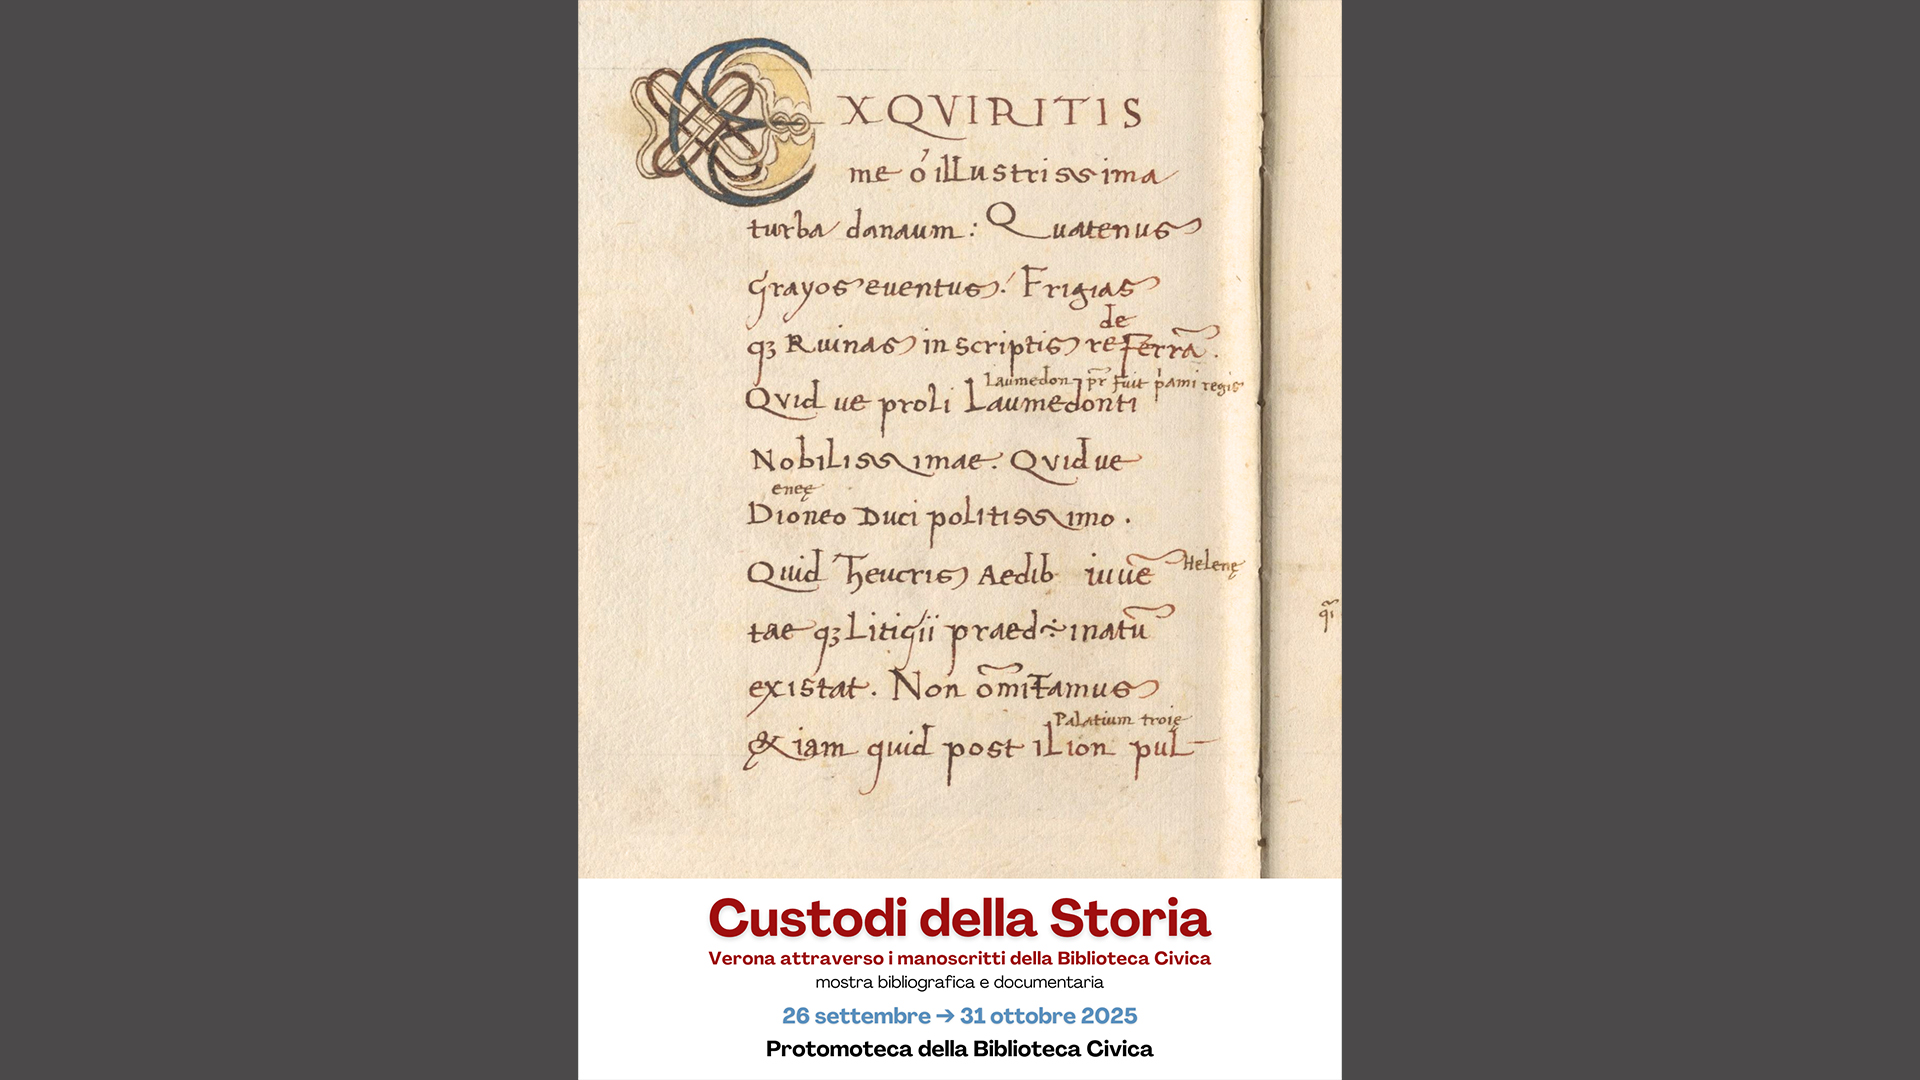 EXQVIRITIS
me o illustrissima
turba danaum: Quatenus
Grayos euentus: Frigias
de
qꝫ Ruinas in scriptis referrā.
Laumedon pr̄ fuit p̍ami regis
Qvid ue proli Laumedonti
Nobilissimae. Qvid ue
eneę
Dioneo Duci politissimo.
Quid Theucris Aedib iuuē Helenę
tae qꝫ Litigii praed÷inatū
existat. Non om̄ittamus
Palatium troię
& iam quid post ilion pul-
qi̅
Custodi della Storia
Verona attraverso i manoscritti della Biblioteca Civica
mostra bibliografica e documentaria
26 settembre → 31 ottobre 2025
Protomoteca della Biblioteca Civica